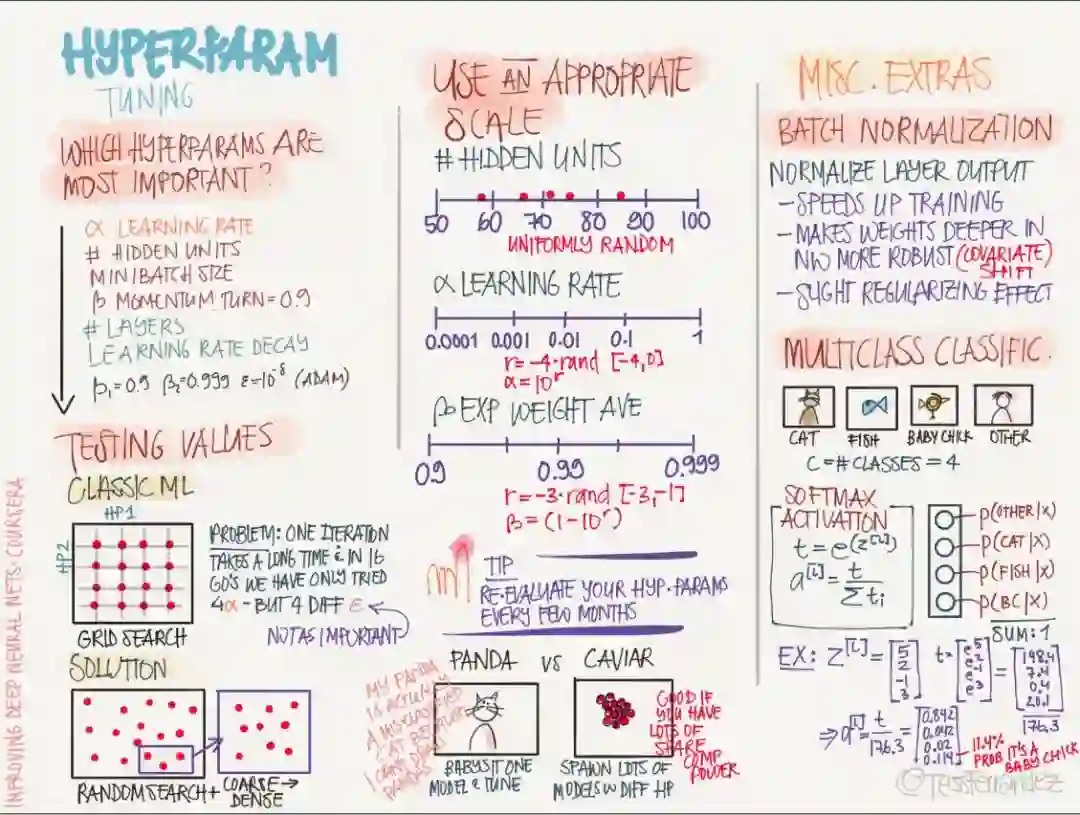 HYPERPARAM
TUNING
WHICH HYPERPARAMS ARE
MOST IMPORTANT?
α LEARNING RATE
# HIDDEN UNITS
MINIBATCH SIZE
β MOMENTUM TURN=0.9
# LAYERS
LEARNING RATE DECAY
β₁=0.9 β₂=0.999 ε=10⁻⁸ (ADAM)
TESTING VALUES
CLASSIC ML
HP1
HP2
GRID SEARCH
PROBLEM: ONE ITERATION
TAKES A LONG TIME & IN 16
GO'S WE HAVE ONLY TRIED
4α - BUT 4 DIFF ε
NOT AS IMPORTANT
SOLUTION
RANDOM SEARCH +
COARSE →
DENSE
IMPROVING DEEP NEURAL NETS · COURSERA
USE AN APPROPRIATE
SCALE
# HIDDEN UNITS
50 60 70 80 90 100
UNIFORMLY RANDOM
α LEARNING RATE
0.0001 0.001 0.01 0.1 1
r=-4·rand [-4,0]
α=10^r
β EXP WEIGHT AVE
0.9 0.99 0.999
r=-3·rand [-3,-1]
β=(1-10^r)
TIP
RE-EVALUATE YOUR HYP.PARAMS
EVERY FEW MONTHS
PANDA VS CAVIAR
MY PANDA
IS ACTUALLY
A MISCLASSIFIED
CAT
I CAN'T DRAW
PANDAS
BABYSIT ONE
MODEL & TUNE
SPAWN LOTS OF
MODELS W DIFF HP
GOOD IF
YOU HAVE
LOTS OF
SHARE
COMP
POWER
MISC. EXTRAS
BATCH NORMALIZATION
NORMALIZE LAYER OUTPUT
- SPEEDS UP TRAINING
- MAKES WEIGHTS DEEPER IN
NW MORE ROBUST (COVARIATE)
SHIFT
- SLIGHT REGULARIZING EFFECT
MULTICLASS CLASSIFIC.
CAT FISH BABY CHICK OTHER
C=# CLASSES = 4
SOFTMAX
ACTIVATION
t=e^(z^[L])
a^[L]=t/Σtᵢ
P(OTHER|X)
P(CAT|X)
P(FISH|X)
P(BC|X)
SUM: 1
EX: Z^[L]=[5 2 -1 3] t=[e⁵ e² e⁻¹ e³]=[148.4 7.4 0.4 20.1]
176.3
⇒ a^[L]=t/176.3=[0.842 0.042 0.02 0.114]
11.4%
PROB IT'S A
BABY CHICK
@TessFerrandez